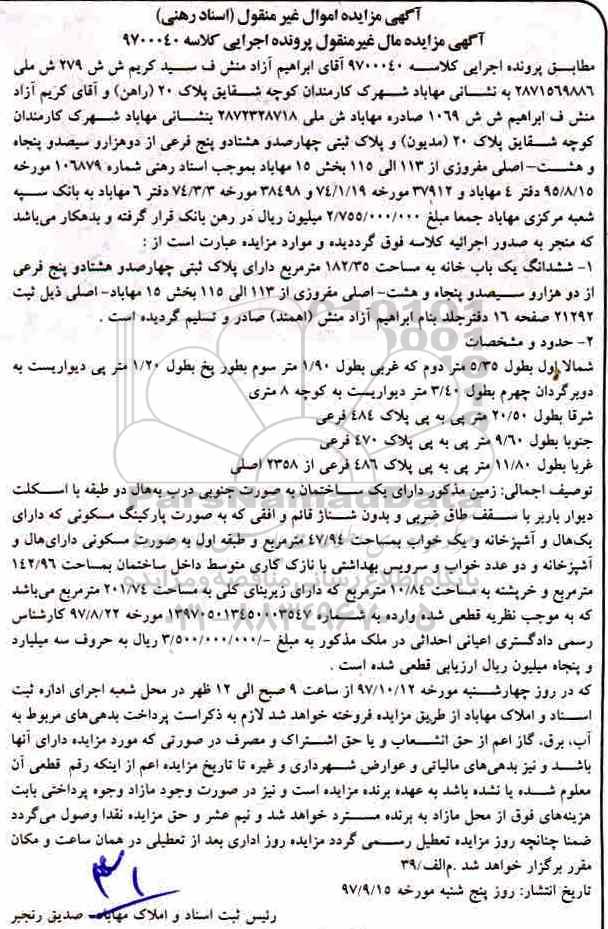 آگهی مزایده اموال غیر منقول (اسناد رهنی)
آگهی مزایده مال غیرمنقول پرونده اجرایی کلاسه ۹۷۰۰۰۴۰
مطابق پرونده اجرایی کلاسه ۹۷۰۰۰۴۰ آقای ابراهیم آزاد منش ف سید کریم ش ش ۲۷۹ ش ملی
۲۸۷۱۵۶۹۸۸۶ به نشانی مهاباد شهرک کارمندان کوچه شقایق پلاک ۲۰ (راهن) و آقای کریم آزاد
منش ف ابراهیم ش ش ۱۰۶۹ صادره مهاباد ش ملی ۲۸۷۲۳۲۸۷۱۸ بنشانی مهاباد شهرک کارمندان
کوچه شقایق پلاک ۲۰ (مدیون) و پلاک ثبتی چهارصدو هشتادو پنج فرعی از دوهزارو سیصدو پنجاه
و هشت- اصلی مفروزی از ۱۱۳ الی ۱۱۵ بخش ۱۵ مهاباد بموجب اسناد رهنی شماره ۱۰۶۸۷۹ مورخه
۹۵/۸/۱۵ دفتر ۴ مهاباد و ۳۷۹۱۲ مورخه ۷۴/۱/۱۹ و ۳۸۴۹۸ مورخه ۷۴/۳/۳ دفتر ۶ مهاباد به بانک سپه
شعبه مرکزی مهاباد جمعا مبلغ ۲/۷۵۵/۰۰۰/۰۰۰ میلیون ریال در رهن بانک قرار گرفته و بدهکار می‌باشد
که منجر به صدور اجرائیه کلاسه فوق گردیدیه و موارد مزایده عبارت است از :
۱- ششدانگ یک باب خانه به مساحت ۱۸۲/۳۵ مترمربع دارای پلاک ثبتی چهارصدو هشتادو پنج فرعی
از دو هزارو سیصدو پنجاه و هشت- اصلی مفروزی از ۱۱۳ الی ۱۱۵ بخش ۱۵ مهاباد- اصلی ذیل ثبت
۲۱۲۹۲ صفحه ۱۶ دفترجلد بنام ابراهیم آزاد منش (اهمند) صادر و تسلیم گردیده است .
۲- حدود و مشخصات
شمالا اول بطول ۵/۳۵ متر دوم که غربی بطول ۱/۹۰ متر سوم بطور پخ بطول ۱/۲۰ متر پی دیواریست به
دوبرگردان چهرم بطول ۳/۴۰ متر دیواریست به کوچه ۸ متری
شرقا بطول ۲۰/۵۰ متر پی به پی پلاک ۴۸۴ فرعی
جنوبا بطول ۹/۶۰ متر پی به پی پلاک ۴۷۰ فرعی
غربا بطول ۱۱/۸۰ متر پی به پی پلاک ۴۸۶ فرعی از ۲۳۵۸ اصلی
توصیف اجمالی: زمین مذکور دارای یک ساختمان به صورت جنوبی درب به‌هال دو طبقه با اسکلت
دیوار باربر با سقف طاق ضربی و بدون شناژ قائم و افقی که به صورت پارکینگ مسکونی که دارای
یک‌هال و آشپزخانه و یک خواب بمساحت ۴۷/۹۴ مترمربع و طبقه اول به صورت مسکونی دارای‌هال و
آشپزخانه و دو عدد خواب و سرویس بهداشتی با نازک کاری متوسط داخل ساختمان بمساحت ۱۴۲/۹۶
مترمربع و خرپشته به مساحت ۱۰/۸۴ مترمربع که دارای زیربنای کلی به مساحت ۲۰۱/۷۴ مترمربع می‌باشد
که به موجب نظریه قطعی شده وارده به شماره ۱۳۹۷۰۵۰۱۳۴۵۰۰۰۳۵۴۷ مورخه ۹۷/۸/۲۲ کارشناس
رسمی دادگستری اعیانی احداثی در ملک مذکور به مبلغ -/۳/۵۰۰/۰۰۰/۰۰۰ ریال به حروف سه میلیارد
و پنجاه میلیون ریال ارزیابی قطعی شده است .
که در روز چهارشنبه مورخه ۹۷/۱۰/۱۲ از ساعت ۹ صبح الی ۱۲ ظهر در محل شعبه اجرای اداره ثبت
اسناد و املاک مهاباد از طریق مزایده فروخته خواهد شد لازم به ذکراست پرداخت بدهی‌های مربوط به
آب، برق، گاز اعم از حق انشعاب و یا حق اشتراک و مصرف در صورتی که مورد مزایده دارای آنها
باشد و نیز بدهی‌های مالیاتی و عوارض شهرداری و غیره تا تاریخ مزایده اعم از اینکه رقم قطعی آن
معلوم شده یا نشده باشد به عهده برنده مزایده است و نیز در صورت وجود مازاد وجوه پرداختی بابت
هزینه‌های فوق از محل مازاد به برنده مسترد خواهد شد و نیم عشر و حق مزایده نقدا وصول می‌گردد
ضمنا چنانچه روز مزایده تعطیل رسمی گردد مزایده روز اداری بعد از تعطیلی در همان ساعت و مکان
مقرر برگزار خواهد شد .م‌الف/۳۹
تاریخ انتشار: روز پنج شنبه مورخه ۹۷/۹/۱۵
رئیس ثبت اسناد و املاک مهاباد- صدیق رنجبر
ParsNamadData
پایگاه اطلاع رسانی مناقصه و مزایده
۰۲۱-۸۸۳۴۹۶۷۰-۵